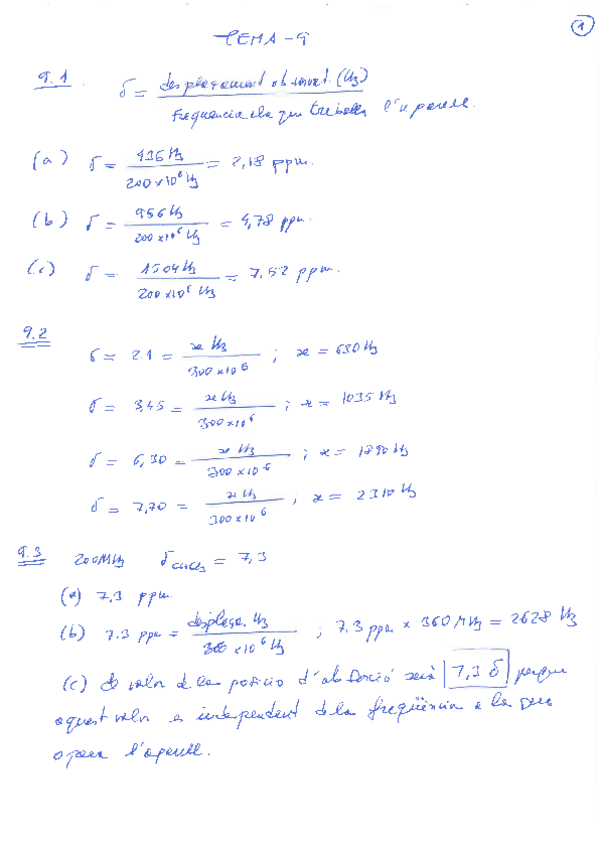 1
TEMA-9
9.1 δ = desplaçament observat (Hz) / Frequencia a la que treballa l'aparell.
(a) δ = 436 Hz / 200 x 10⁶ Hz = 2,18 ppm.
(b) δ = 956 Hz / 200 x 10⁶ Hz = 4,78 ppm.
(c) δ = 1504 Hz / 200 x 10⁶ Hz = 7,52 ppm.
9.2
δ = 2.1 = x Hz / 300 x 10⁶ ; x = 630 Hz
δ = 3,45 = x Hz / 300 x 10⁶ ; x = 1035 Hz
δ = 6,30 = x Hz / 300 x 10⁶ ; x = 1890 Hz
δ = 7,70 = x Hz / 300 x 10⁶ , x = 2310 Hz
9.3 200MHz δCHCl3 = 7,3
(a) 7.3 ppm
(b) 7.3 ppm = desplaça. Hz / 360 x 10⁶ Hz ; 7.3 ppm x 360 MHz = 2628 Hz
(c) El valor de la posicio d'absorció serà 7,3 δ perque
aquest valor es independent de la freqüència a la que
opera l'aparell.